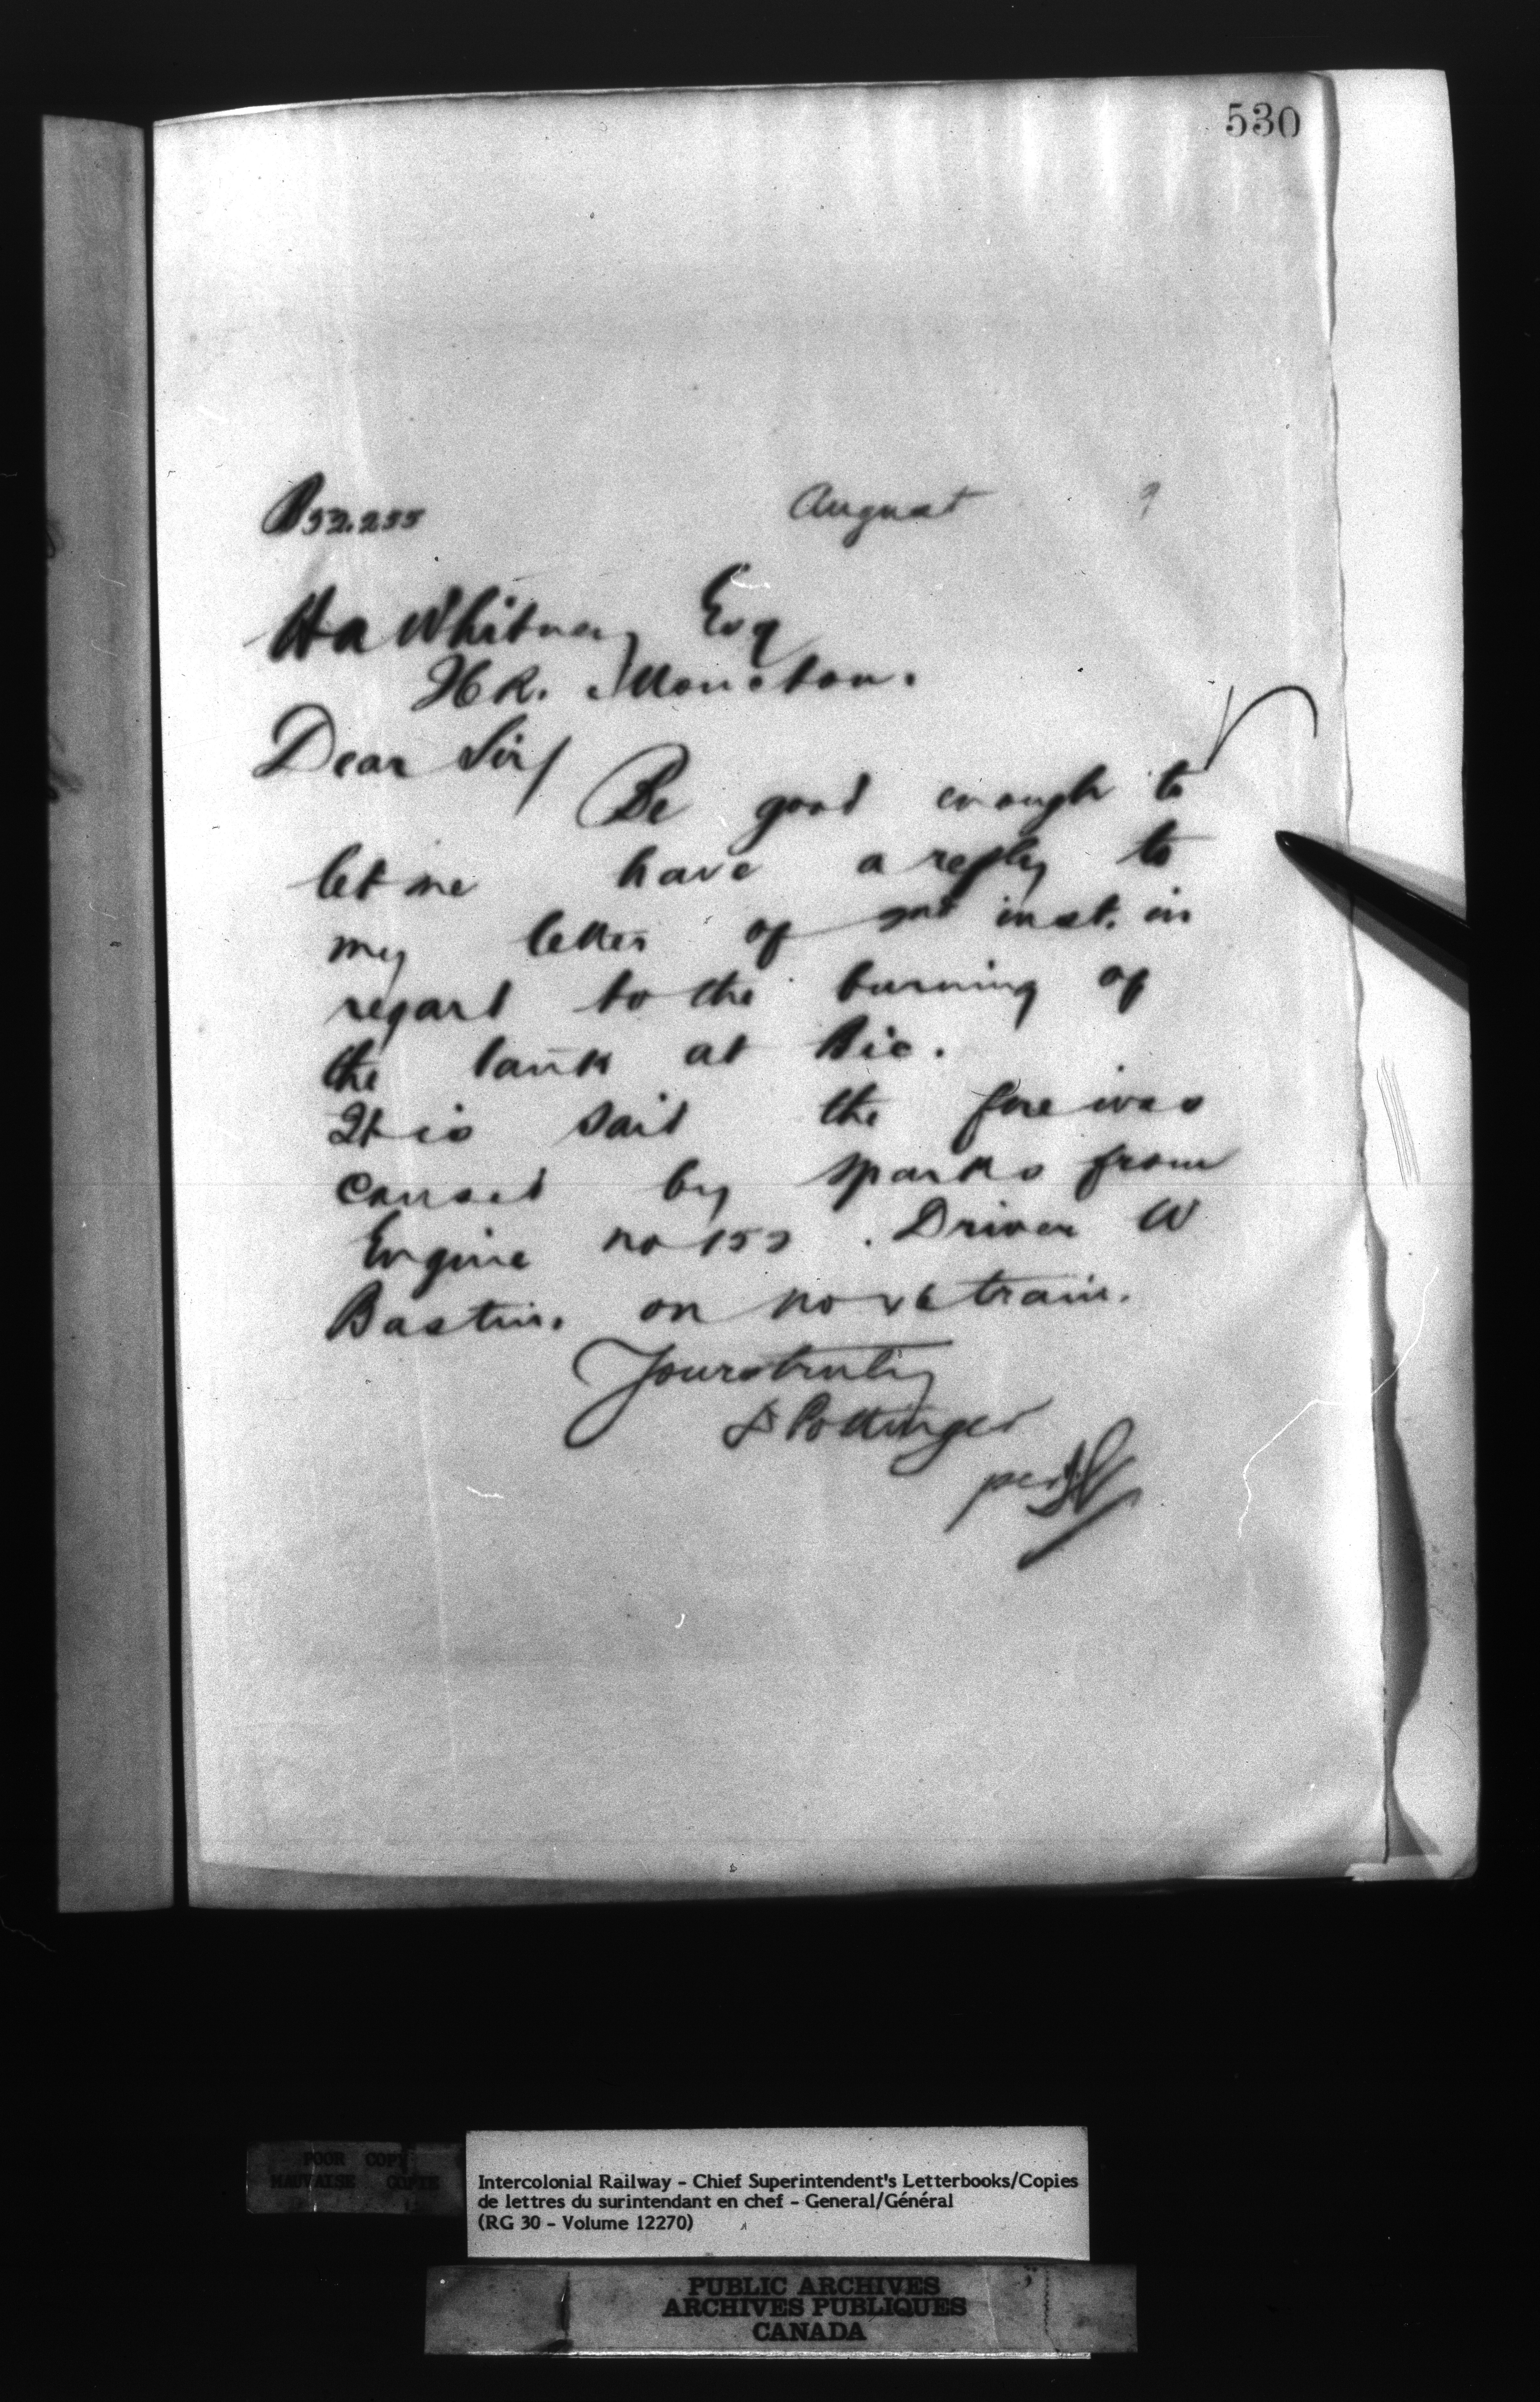 530
August 9
Ha Whitney Esq
Moncton.
Dear Sir/
Be good enough to
let me have a reply to
my letter of inst. in
regard to the burning of
the tank at Bic.
It is said the fire was
caused by sparks from
Engine no . Driver W
Bastin. on no train.
Yours truly
D Pottinger
per
POOR COPY
MAUVAISE COPIE
Intercolonial Railway - Chief Superintendent's Letterbooks/Copies
de lettres du surintendant en chef - General/Général
(RG 30 - Volume 12270)
PUBLIC ARCHIVES
ARCHIVES PUBLIQUES
CANADA